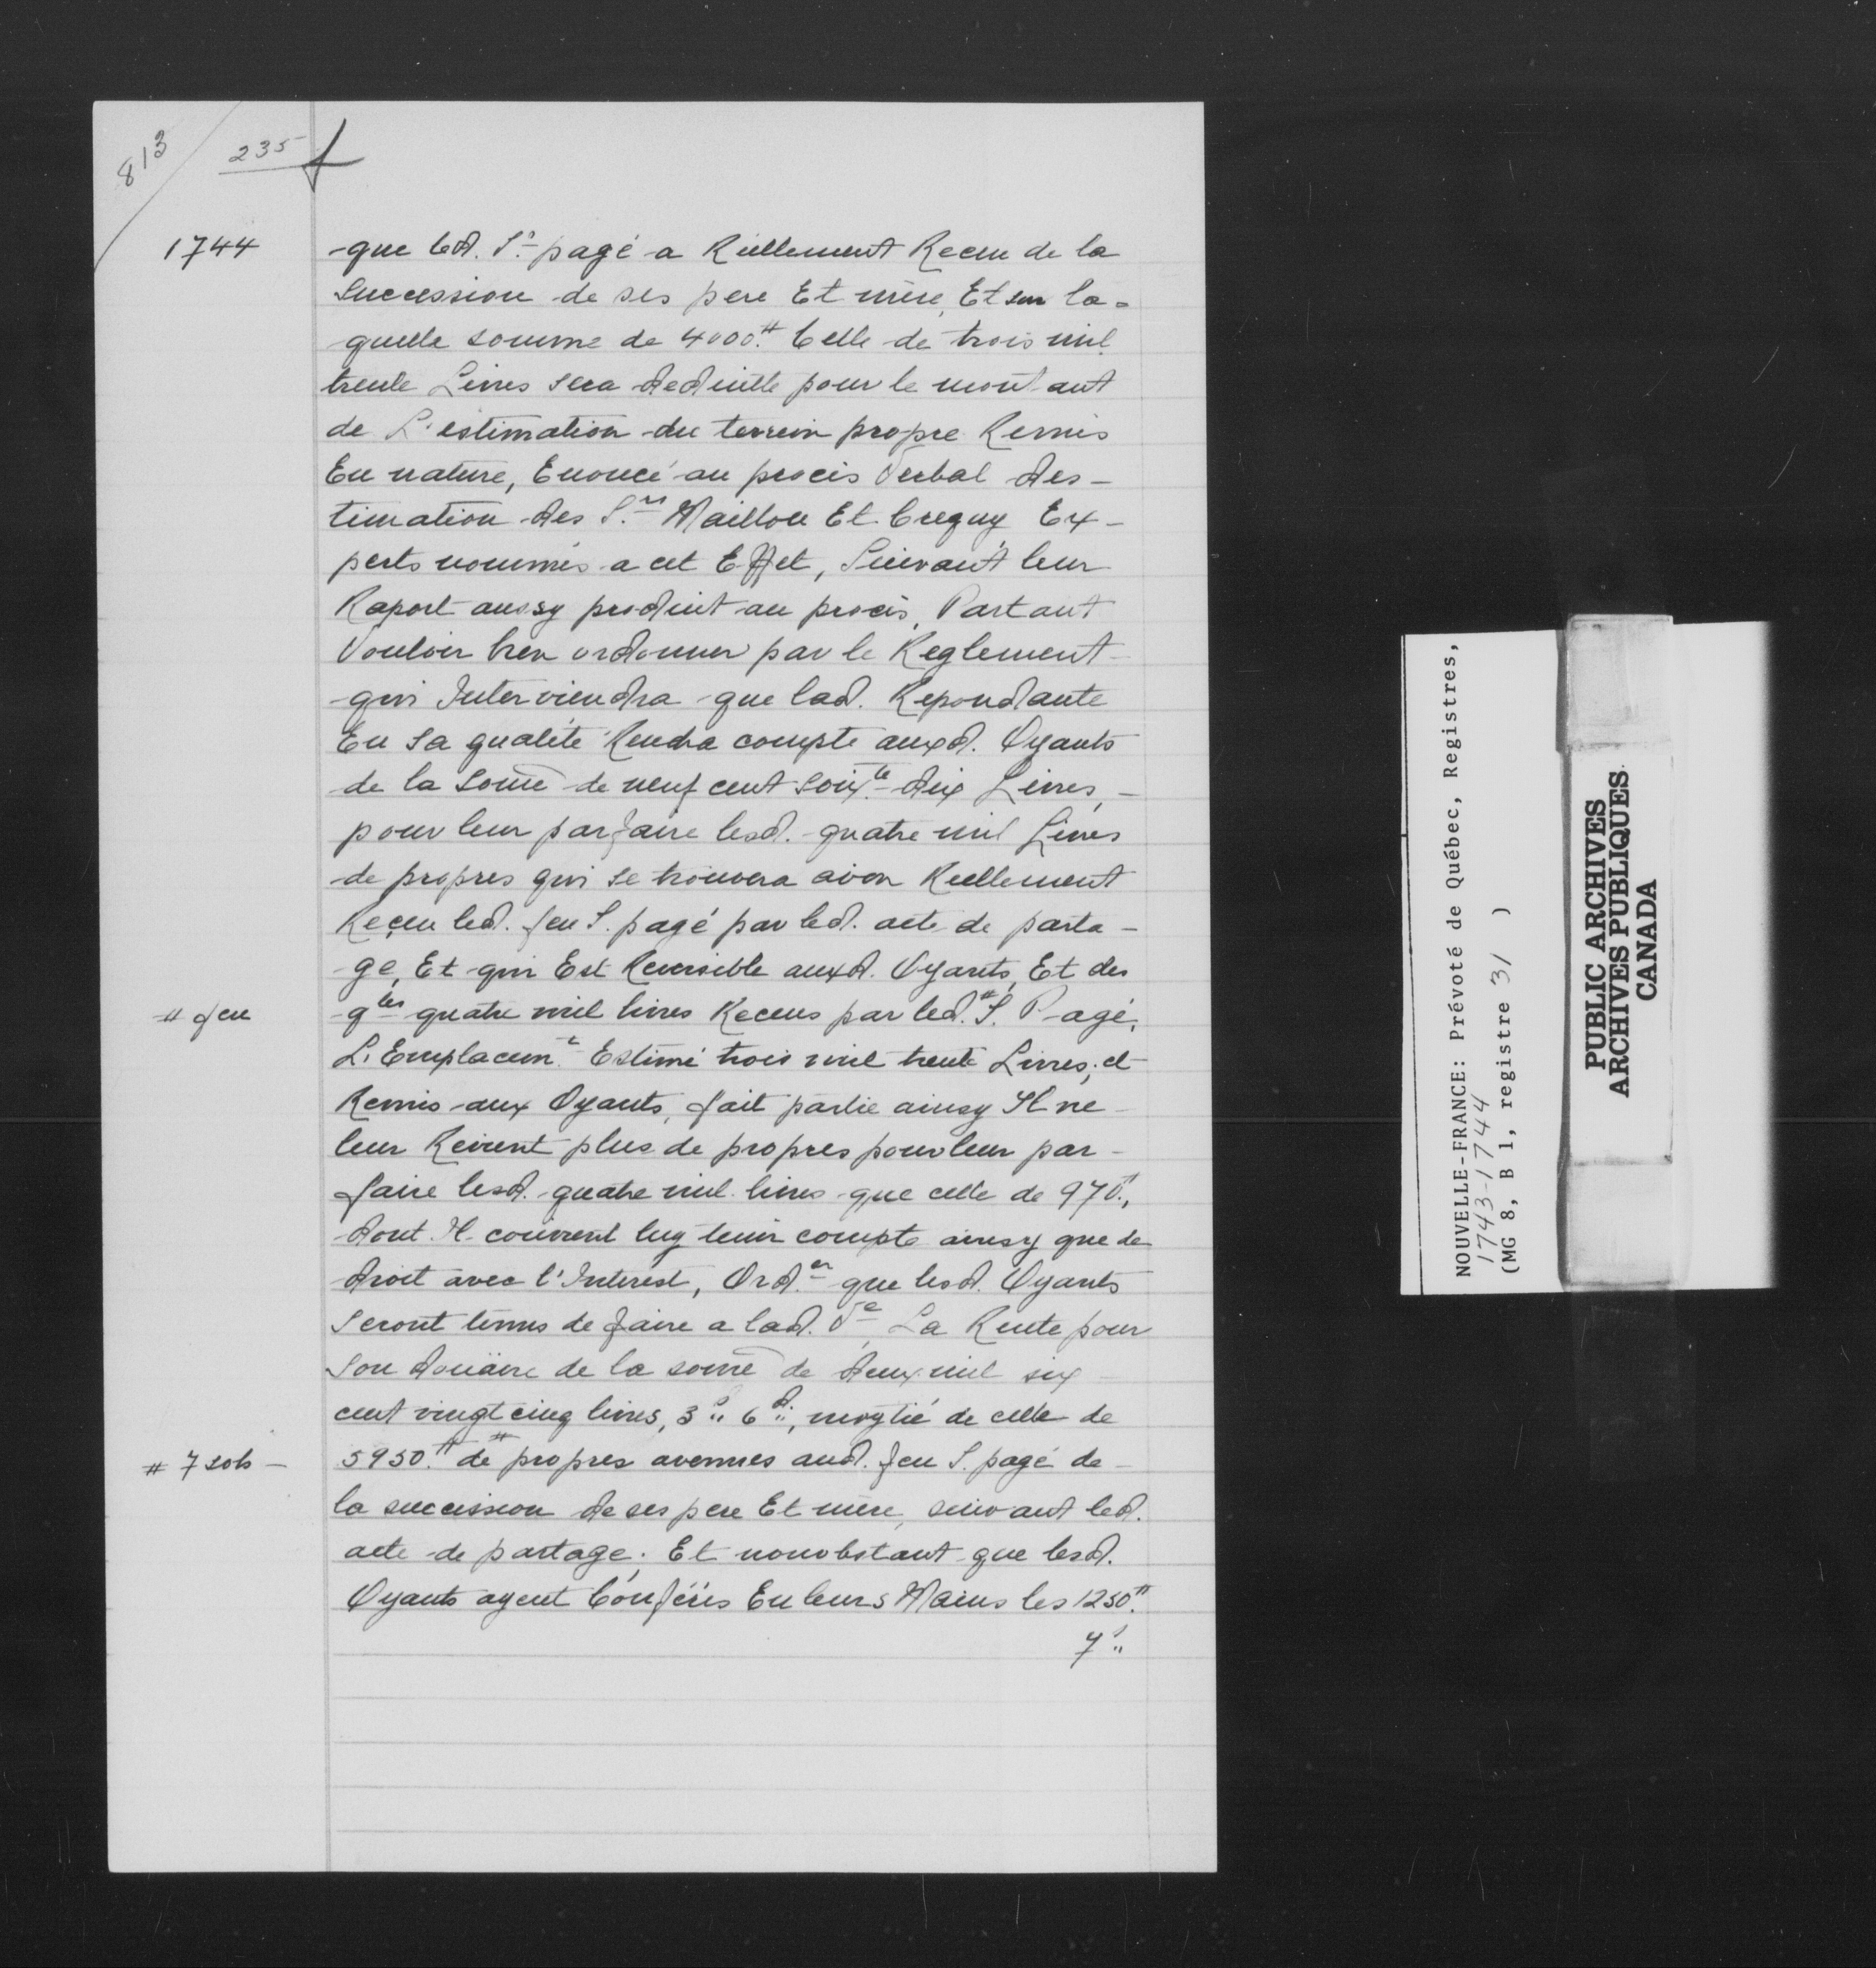 813
235
1744
que led. Sr. pagé a Réellement Receu de la
Succession de ses pere Et mère, Et sur la=
quelle somme de 4000.# Celle de trois mil
trente Livres sera deduitte pour le montant
de L'estimation du terrein propre Remis
En nature, Enoncé au procès Verbal des-
timation des S.rs Maillou Et Creguy Ex-
perts nommés a cet Effet, Suivant leur
Raport aussy produit au procès, Partant
Vouloir bien ordonner par le Reglement
qui Interviendra que lad. Repondante
En sa qualité Rendra compte auxd. Oyants
de la Somē de neuf cent soix.te dix Livres, -
pour leur parfaire lesd. quatre mil Livres
de propres qui se trouvera avoir Reellement
Reçeu led. feu S. pagé par led. acte de parta-
ge, Et qui Est Reversible auxd. Oyants, Et des
# feu
qles quatre mil livres Receus par led.# S. Pagé,
L'Emplacem.t Estimé trois mil trente Livres, et
Remis aux Oyants, fait partie ainsy Il ne
leur Revient plus de propres pour leur par-
faire lesd. quatre mil livres que celle de 970.#,
dont Il convient luy tenir compte ainsy que de
droit avec l'Interest, Ord.er que lesd. Oyants
Seront tenus de faire a lad. Ve La Rente pour
Son doüaire de la somē de deux mil six
cent vingt cinq livres, 3 s. 6 d., moytié de celle de
# 7 sols -
5950.# de # propres avenues aud. feu S. pagé de
la succession de ses pere Et mère, suivant led.
acte de partage. Et nonobstant que lesd.
Oyants ayent Conférés En leurs Mains les 1250.#
7 s.
NOUVELLE-FRANCE: Prévoté de Québec, Registres,
1743-1744
(MG 8, B 1, registre 31 )
PUBLIC ARCHIVES
ARCHIVES PUBLIQUES
CANADA